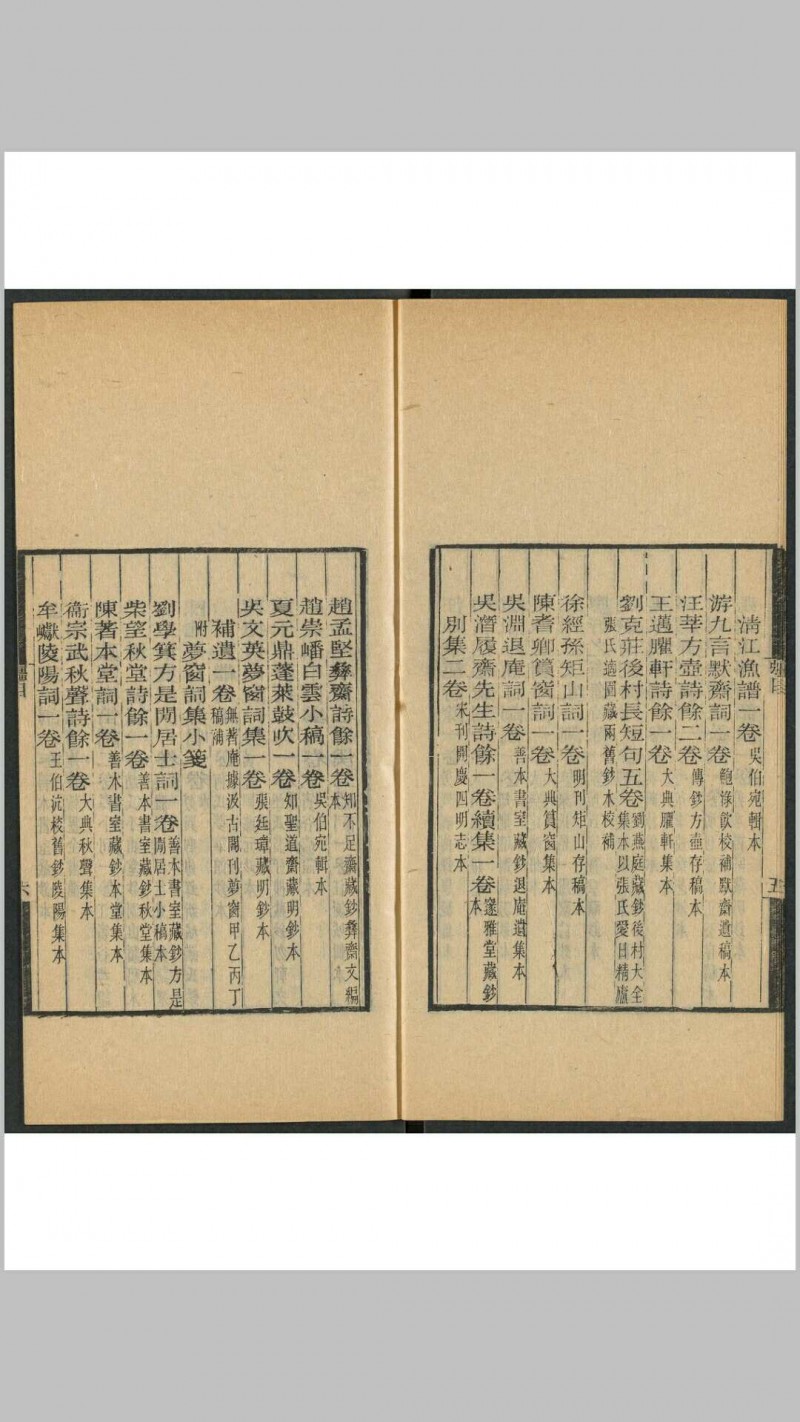 清江漁譜一卷吳伯宛輯本
游九言默齋詞一卷鮑淥飮校補默齋遺稿本
汪莘方壺詩餘二卷傳鈔方壺存稿本
王邁臞軒詩餘一卷大典臞軒集本
劉克莊後村長短句五卷劉燕庭藏鈔後村大全集本以張氏愛日精廬
張氏適園藏兩舊鈔本校補
徐經孫矩山詞一卷明刊矩山存稿本
陳耆卿篔窗詞一卷大典篔窗集本
吳淵退庵詞一卷善本書室藏鈔退庵遺集本
吳潛履齋先生詩餘一卷續集一卷邃雅堂藏鈔本
別集二卷宋刊開慶四明志本
五
趙孟堅彝齋詩餘一卷知不足齋藏鈔彝齋文編本
趙崇嶓白雲小稿一卷吳伯宛輯本
夏元鼎蓬萊鼓吹一卷知聖道齋藏明鈔本
吳文英夢窗詞集一卷張廷璋藏明鈔本
補遺一卷無著庵據汲古閣刊夢窗甲乙丙丁稿補
附夢窗詞集小箋
劉學箕方是閒居士詞一卷善本書室藏鈔方是閒居士小稿本
柴望秋堂詩餘一卷善本書室藏鈔秋堂集本
陳著本堂詞一卷善本書室藏鈔本堂集本
衞宗武秋聲詩餘一卷大典秋聲集本
牟巘陵陽詞一卷王伯沆校舊鈔陵陽集本
六